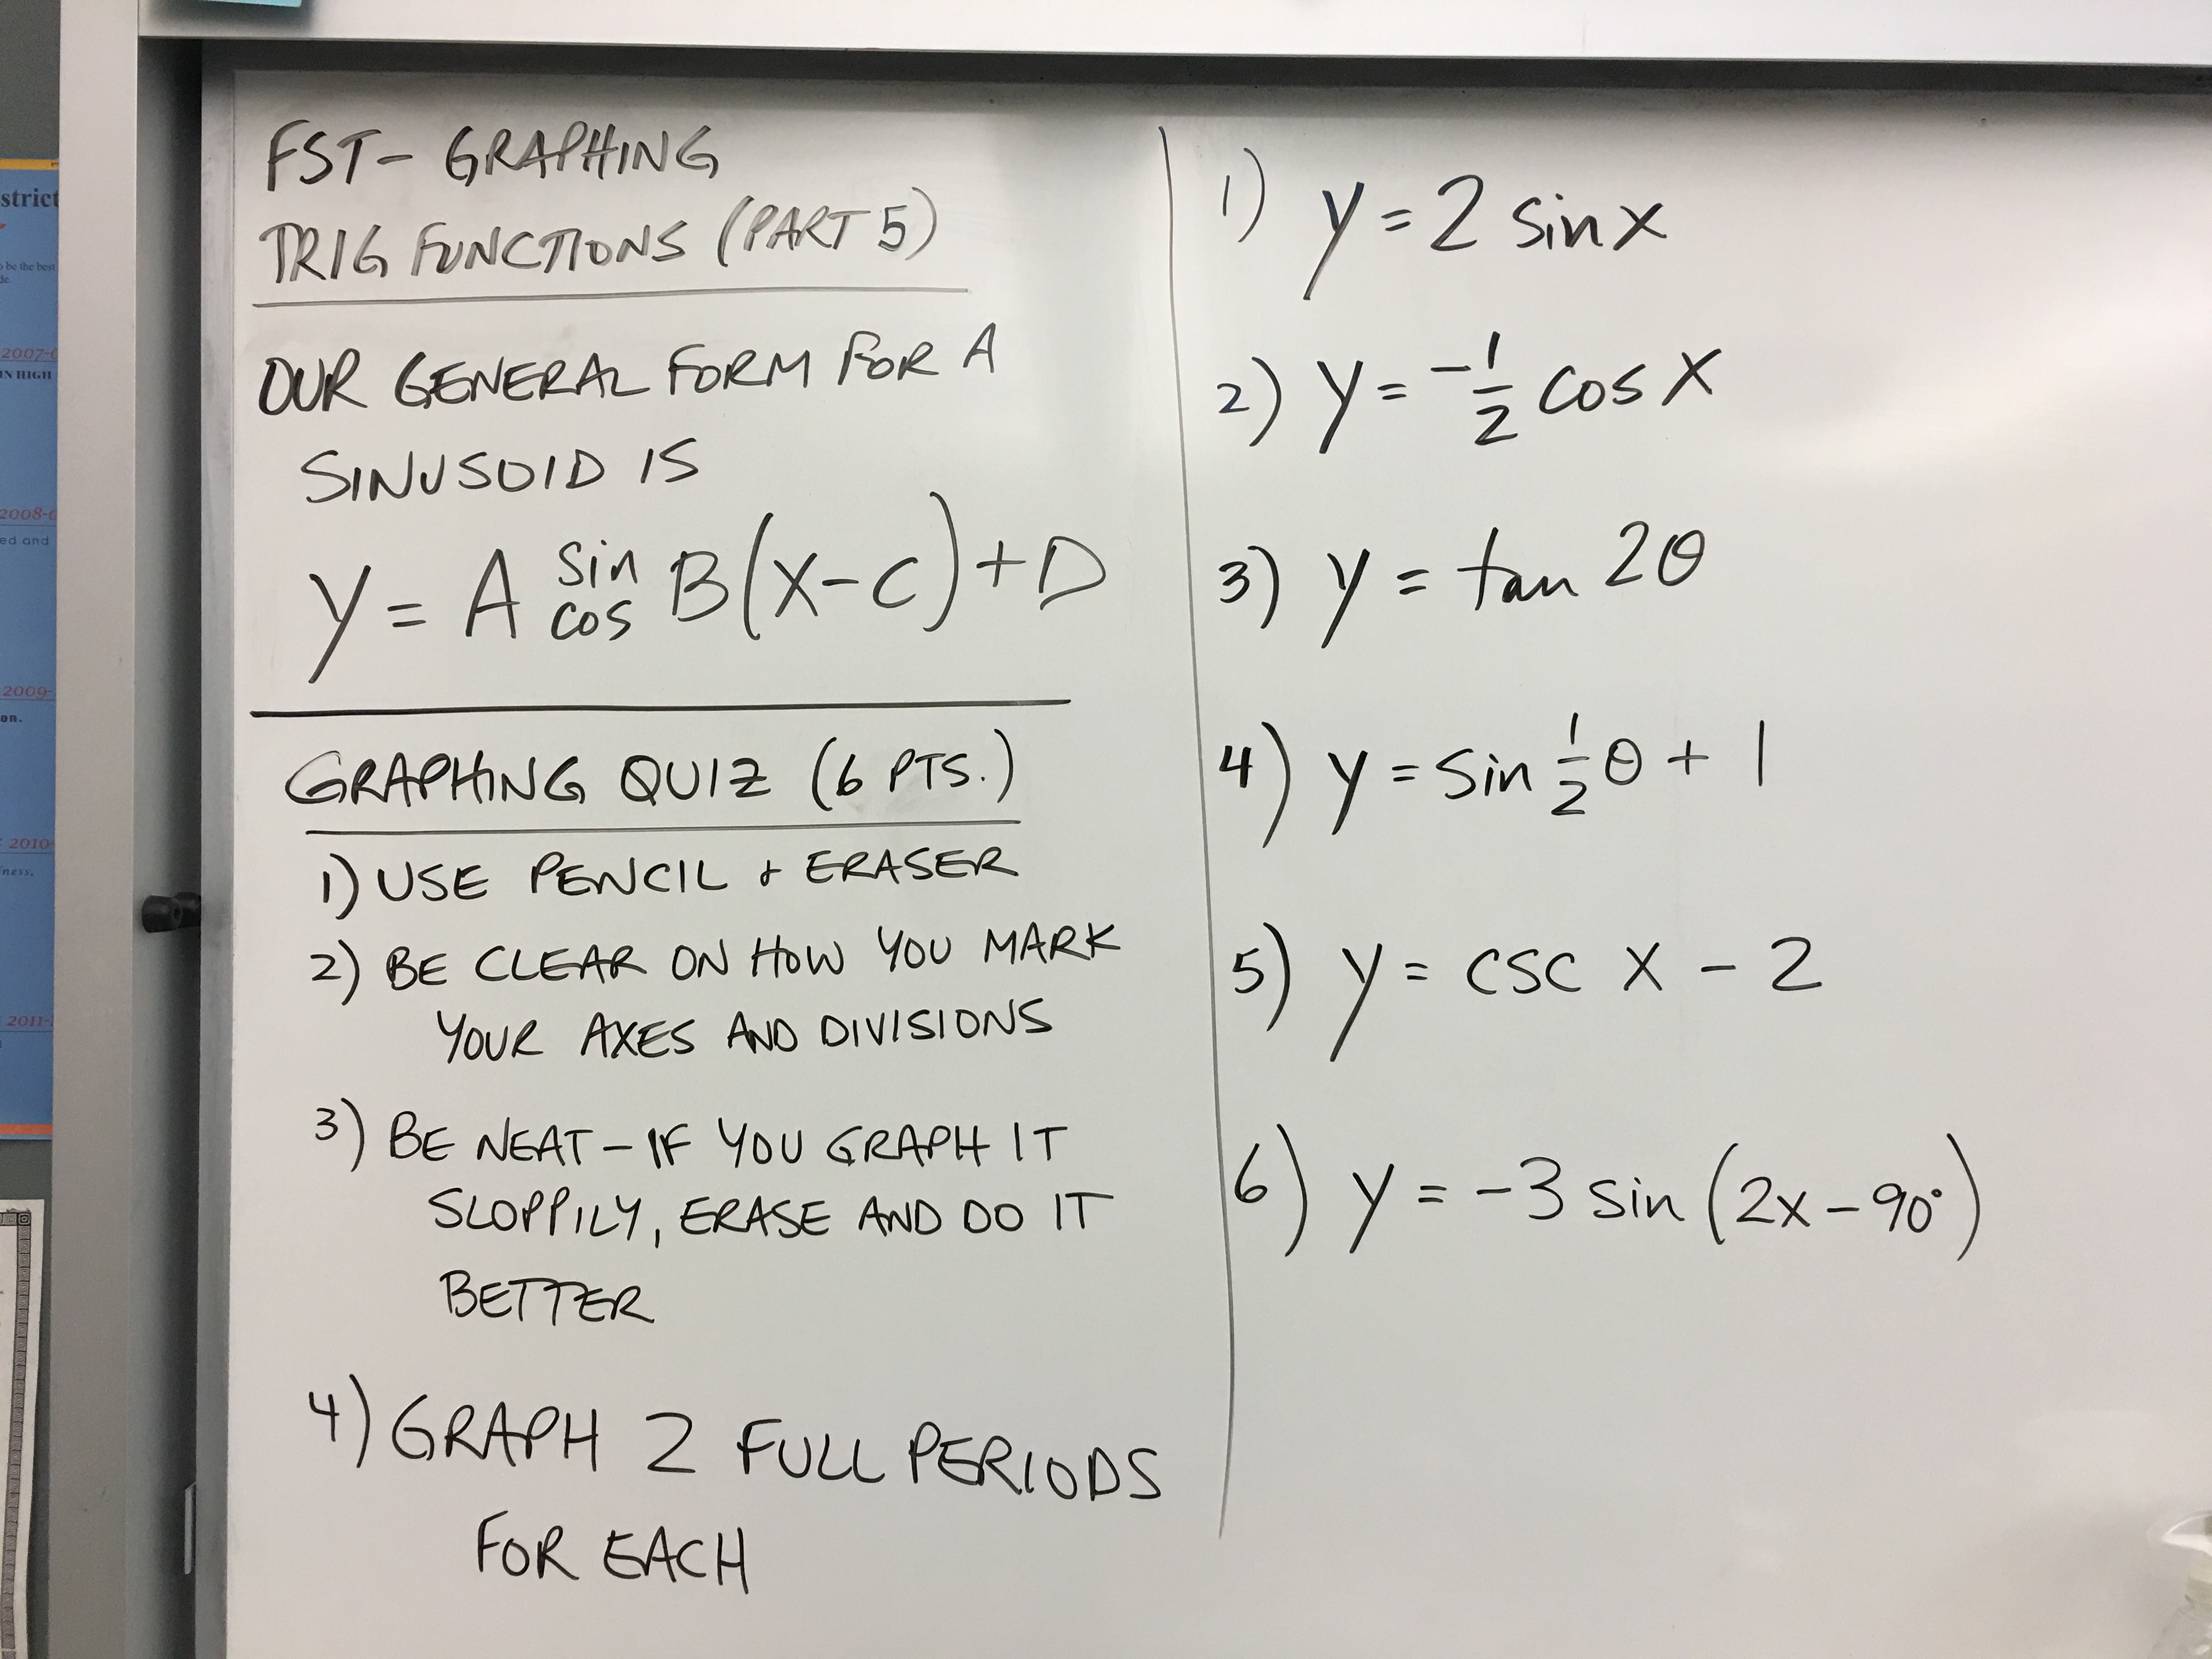 FST- GRAPHING
TRIG FUNCTIONS (PART 5)
OUR GENERAL FORM FOR A
SINUSOID IS
y = A sin cos B(x-c)+D
GRAPHING QUIZ (6 PTS.)
1) USE PENCIL + ERASER
2) BE CLEAR ON HOW YOU MARK
YOUR AXES AND DIVISIONS
3) BE NEAT - IF YOU GRAPH IT
SLOPPILY, ERASE AND DO IT
BETTER
4) GRAPH 2 FULL PERIODS
FOR EACH
1) y = 2 sin x
2) y = -1/2 cos x
3) y = tan 2θ
4) y = sin 1/2 θ + 1
5) y = csc x - 2
6) y = -3 sin (2x - 90°)
strict
o be the best
2007-0
IN HIGH
2008-0
ed and
2009-
on.
2010-
ness.
2011-